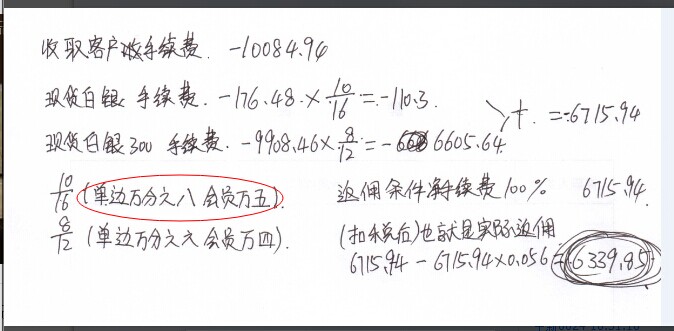 收取客户收手续费. -10084.94
现货白银 手续费. -176.48.×10/16=-110.3.
现货白银300 手续费. -9908.46×8/12=-6605.64.
+. =-6715.94
10/16 (单边万分之八 会员万五).
8/12 (单边万分之六 会员万四).
返佣条件净手续费100% 6715.94.
(扣税后)也就是实际返佣
6715.94-6715.94×0.056=6339.85